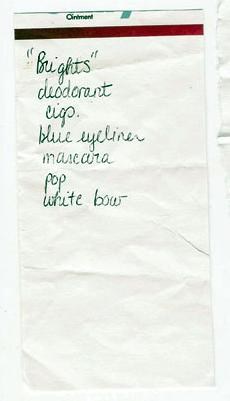 Ointment
"Brights"
deodorant
cigs.
blue eyeliner
mascara
pop
white bow